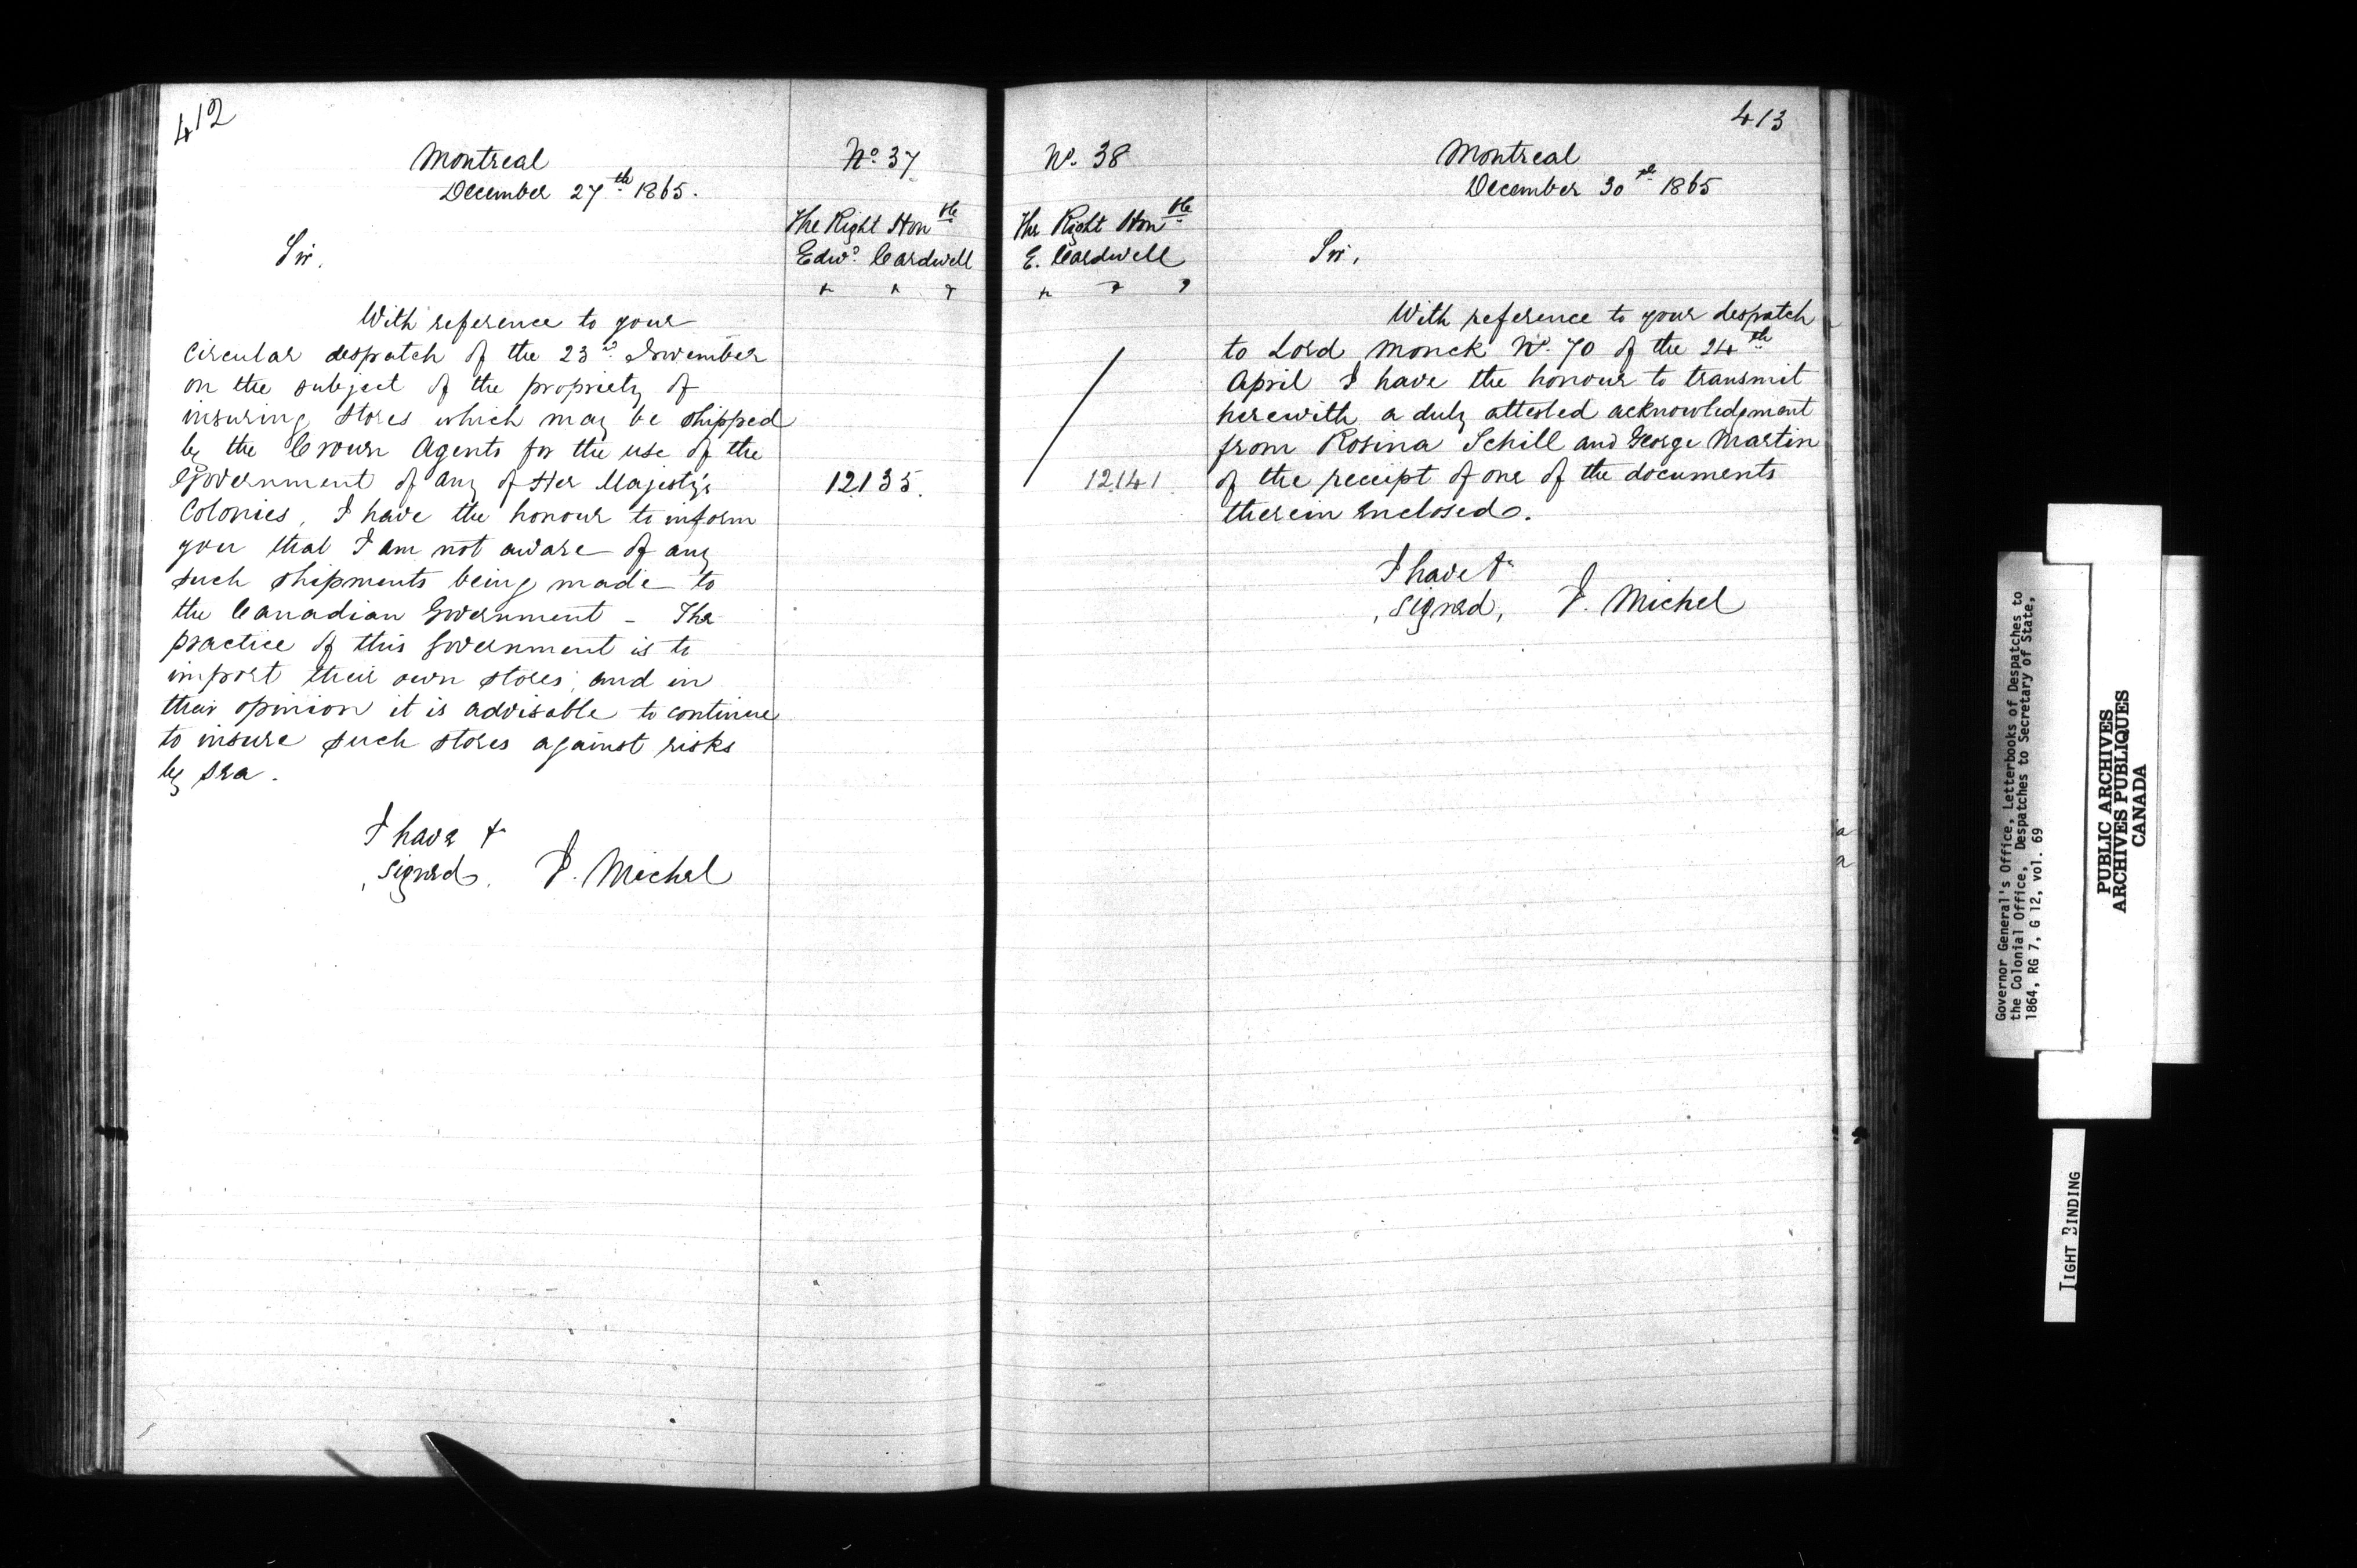 412
Montreal
December 27th 1865.
No. 37
The Right Honble
Edwd. Cardwell
Sir,
With reference to your
Circular despatch of the 23rd November
on the subject of the propriety of
insuring stores which may be shipped
by the Crown Agents for the use of the
Government of any of Her Majesty's
12135.
Colonies, I have the honour to inform
you that I am not aware of any
such shipments being made to
the Canadian Government - The
practice of this Government is to
import their own stores, and in
their opinion it is advisable to continue
to insure such stores against risks
by sea.
I have &
signed, J. Michel
413
No. 38
Montreal
December 30th 1865
The Right Honble
E. Cardwell
Sir,
With reference to your despatch
to Lord Monck No. 70 of the 24th
April I have the honour to transmit
herewith a duly attested acknowledgment
from Rosina Schill and George Martin
12141
of the receipt of one of the documents
therein enclosed.
I have &
signed, J. Michel
Governor General's Office, Letterbooks of Despatches to
the Colonial Office, Despatches to Secretary of State,
1864, RG 7, G 12, vol. 69
PUBLIC ARCHIVES
ARCHIVES PUBLIQUES
CANADA
TIGHT BINDING